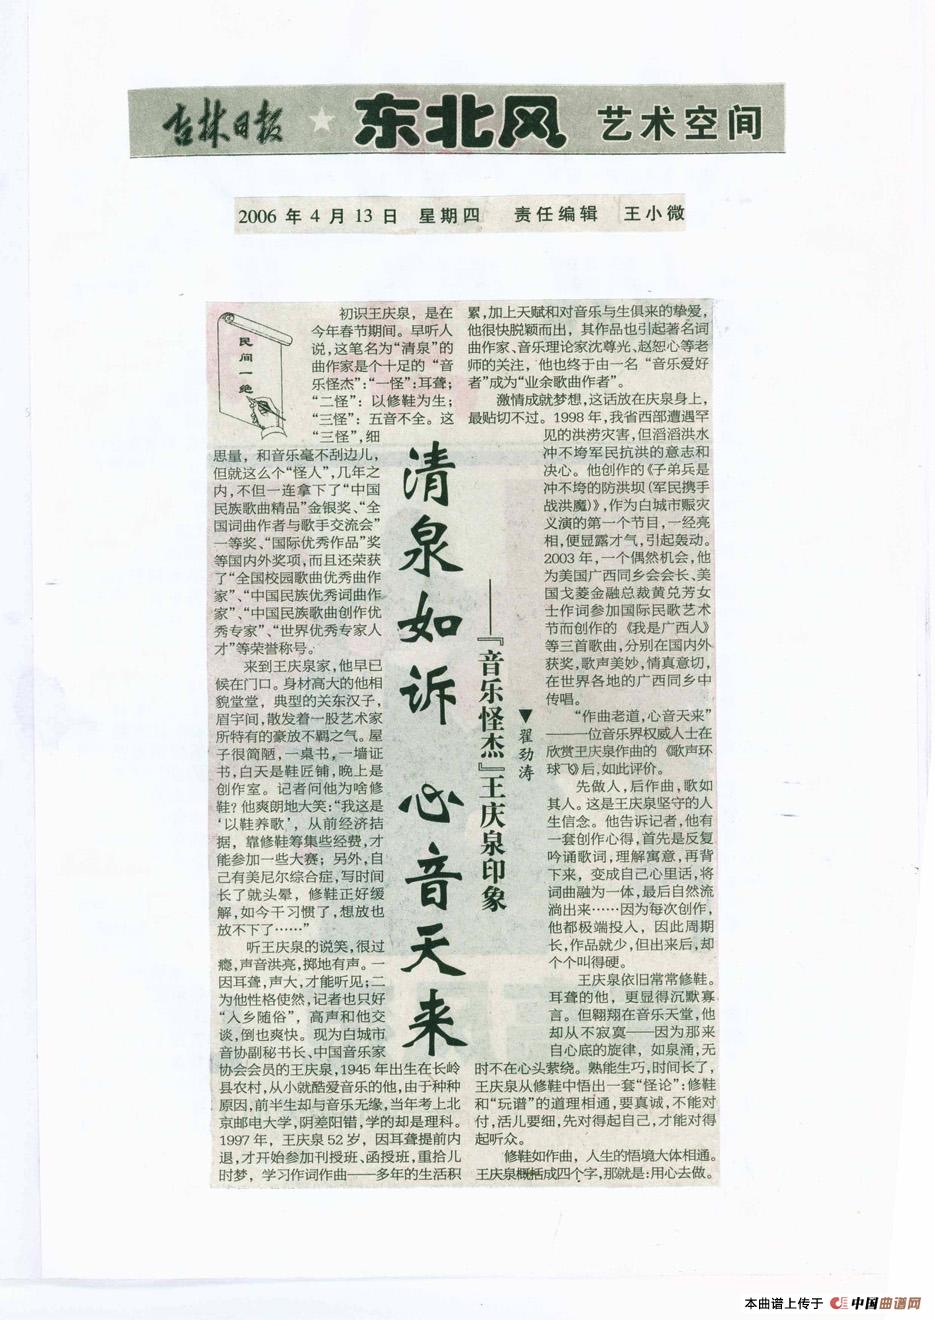 吉林日报 东北风 艺术空间
2006 年 4 月 13 日 星期四 责任编辑 王小微
民间一绝
清泉如诉 心音天来
——『音乐怪杰』王庆泉印象
▼翟劲涛
初识王庆泉，是在
今年春节期间。早听人
说，这笔名为“清泉”的
曲作家是个十足的“音
乐怪杰”：“一怪”：耳聋；
“二怪”：以修鞋为生；
“三怪”：五音不全。这
“三怪”，细
思量，和音乐毫不刮边儿，
但就这么个“怪人”，几年之
内，不但一连拿下了“中国
民族歌曲精品”金银奖、“全
国词曲作者与歌手交流会”
一等奖、“国际优秀作品”奖
等国内外奖项，而且还荣获
了“全国校园歌曲优秀曲作
家”、“中国民族优秀词曲作
家”、“中国民族歌曲创作优
秀专家”、“世界优秀专家人
才”等荣誉称号。
来到王庆泉家，他早已
候在门口。身材高大的他相
貌堂堂，典型的关东汉子，
眉宇间，散发着一股艺术家
所特有的豪放不羁之气。屋
子很简陋，一桌书，一墙证
书，白天是鞋匠铺，晚上是
创作室。记者问他为啥修
鞋？他爽朗地大笑：“我这是
‘以鞋养歌’，从前经济拮
据，靠修鞋筹集些经费，才
能参加一些大赛；另外，自
己有美尼尔综合症，写时间
长了就头晕，修鞋正好缓
解，如今干习惯了，想放也
放不下了……”
听王庆泉的说笑，很过
瘾，声音洪亮，掷地有声。一
因耳聋，声大，才能听见；二
为他性格使然，记者也只好
“入乡随俗”，高声和他交
谈，倒也爽快。现为白城市
音协副秘书长、中国音乐家
协会会员的王庆泉，1945 年出生在长岭
县农村，从小就酷爱音乐的他，由于种种
原因，前半生却与音乐无缘，当年考上北
京邮电大学，阴差阳错，学的却是理科。
1997 年，王庆泉 52 岁，因耳聋提前内
退，才开始参加刊授班、函授班，重拾儿
时梦，学习作词作曲——多年的生活积
累，加上天赋和对音乐与生俱来的挚爱，
他很快脱颖而出，其作品也引起著名词
曲作家、音乐理论家沈尊光、赵恕心等老
师的关注，他也终于由一名“音乐爱好
者”成为“业余歌曲作者”。
激情成就梦想，这话放在庆泉身上，
最贴切不过。1998 年，我省西部遭遇罕
见的洪涝灾害，但滔滔洪水
冲不垮军民抗洪的意志和
决心。他创作的《子弟兵是
冲不垮的防洪坝（军民携手
战洪魔）》，作为白城市赈灾
义演的第一个节目，一经亮
相，便显露才气，引起轰动。
2003 年，一个偶然机会，他
为美国广西同乡会会长、美
国戈菱金融总裁黄兑芳女
士作词参加国际民歌艺术
节而创作的《我是广西人》
等三首歌曲，分别在国内外
获奖，歌声美妙，情真意切，
在世界各地的广西同乡中
传唱。
“作曲老道，心音天来”
——一位音乐界权威人士在
欣赏王庆泉作曲的《歌声环
球飞》后，如此评价。
先做人，后作曲，歌如
其人。这是王庆泉坚守的人
生信念。他告诉记者，他有
一套创作心得，首先是反复
吟诵歌词，理解寓意，再背
下来，变成自己心里话，将
词曲融为一体，最后自然流
淌出来……因为每次创作，
他都极端投入，因此周期
长，作品就少，但出来后，却
个个叫得硬。
王庆泉依旧常常修鞋。
耳聋的他，更显得沉默寡
言。但翱翔在音乐天堂，他
却从不寂寞——因为那来
自心底的旋律，如泉涌，无
时不在心头萦绕。熟能生巧，时间长了，
王庆泉从修鞋中悟出一套“怪论”：修鞋
和“玩谱”的道理相通，要真诚，不能对
付，活儿要细，先对得起自己，才能对得
起听众。
修鞋如作曲，人生的悟境大体相通。
王庆泉概括成四个字，那就是：用心去做。
本曲谱上传于 中国曲谱网